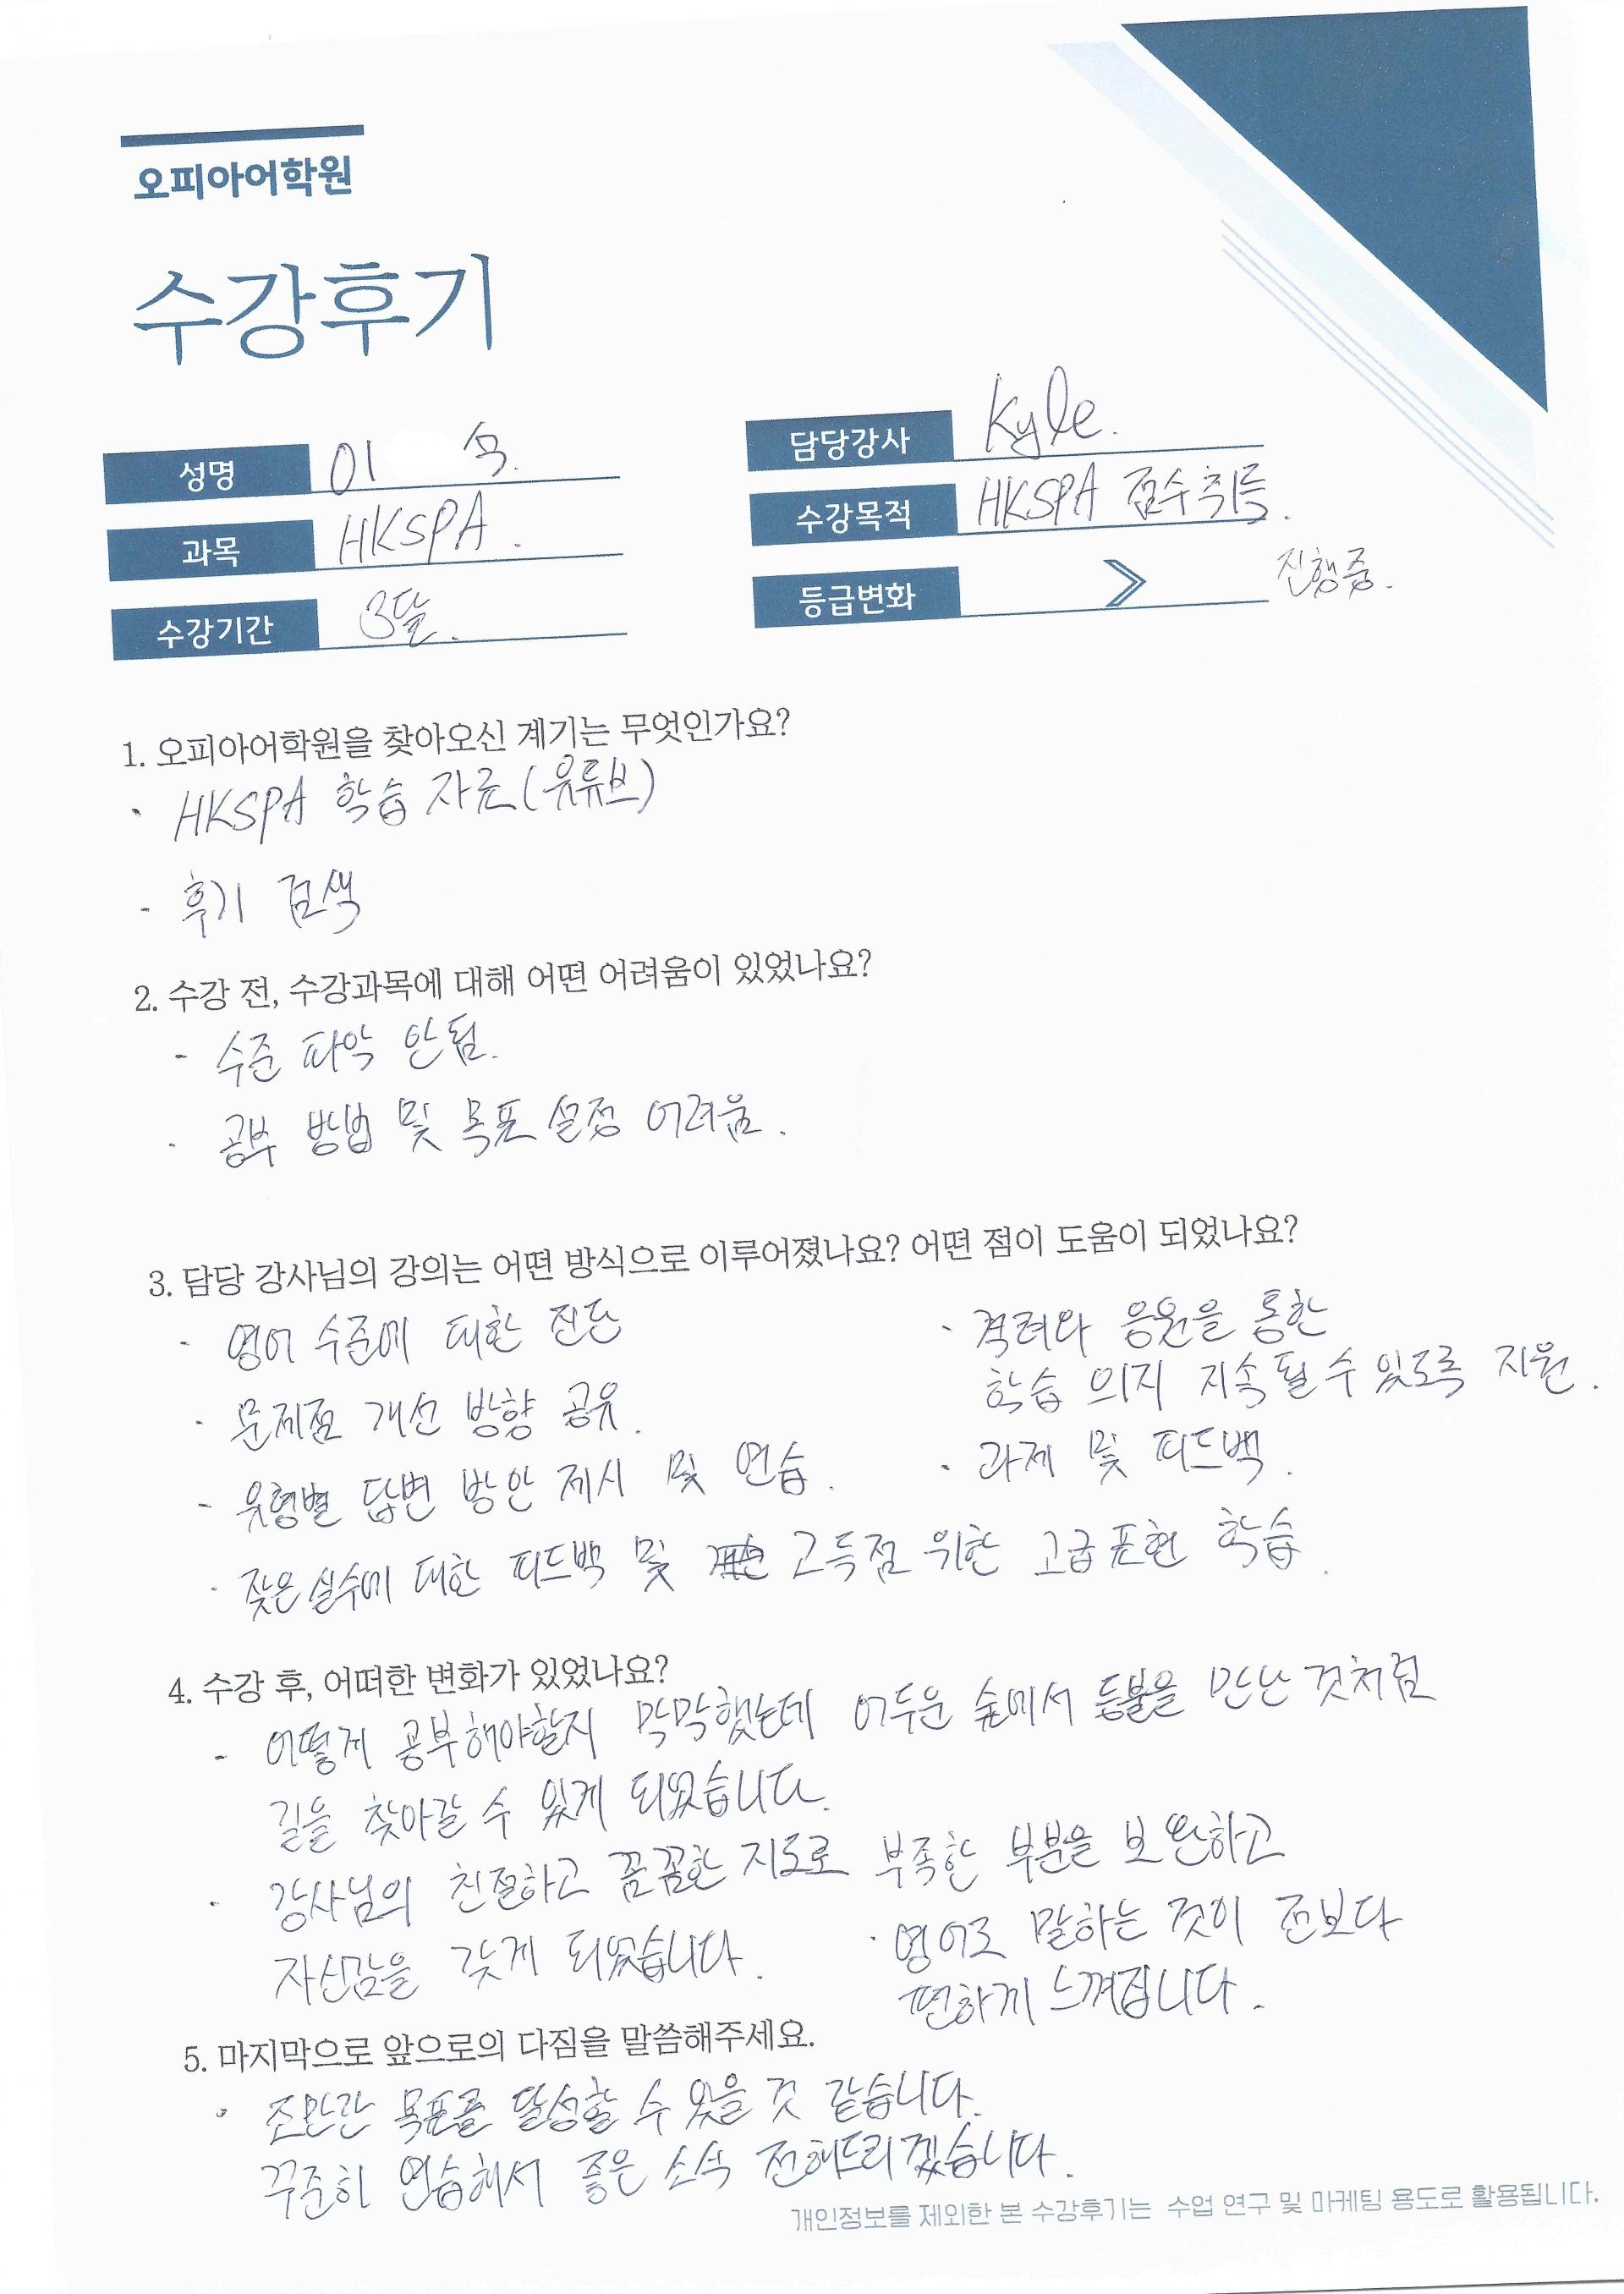 오피아어학원
수강후기
성명 이 욱.
담당강사 Kyle.
과목 HKSPA.
수강목적 HKSPA 점수취득.
수강기간 3달.
등급변화 진행중.
1. 오피아어학원을 찾아오신 계기는 무엇인가요?
· HKSPA 학습 자료(유튜브)
- 후기 검색
2. 수강 전, 수강과목에 대해 어떤 어려움이 있었나요?
- 수준 파악 안됨.
· 공부 방법 및 목표 설정 어려움.
3. 담당 강사님의 강의는 어떤 방식으로 이루어졌나요? 어떤 점이 도움이 되었나요?
- 영어 수준에 대한 진단
· 문제점 개선 방향 공유.
- 유형별 답변 방안 제시 및 연습.
· 잦은 실수에 대한 피드백 및 고득점 위한 고급표현 학습.
· 격려와 응원을 통한
학습 의지 지속될 수 있도록 지원.
· 과제 및 피드백.
4. 수강 후, 어떠한 변화가 있었나요?
- 어떻게 공부해야할지 막막했는데 어두운 숲에서 등불을 만난 것처럼
길을 찾아갈 수 있게 되었습니다.
· 강사님의 친절하고 꼼꼼한 지도로 부족한 부분을 보완하고
자신감을 갖게 되었습니다.
· 영어로 말하는 것이 전보다
편하게 느껴집니다.
5. 마지막으로 앞으로의 다짐을 말씀해주세요.
· 조만간 목표를 달성할 수 있을 것 같습니다.
꾸준히 연습해서 좋은 소식 전해드리겠습니다.
개인정보를 제외한 본 수강후기는 수업 연구 및 마케팅 용도로 활용됩니다.